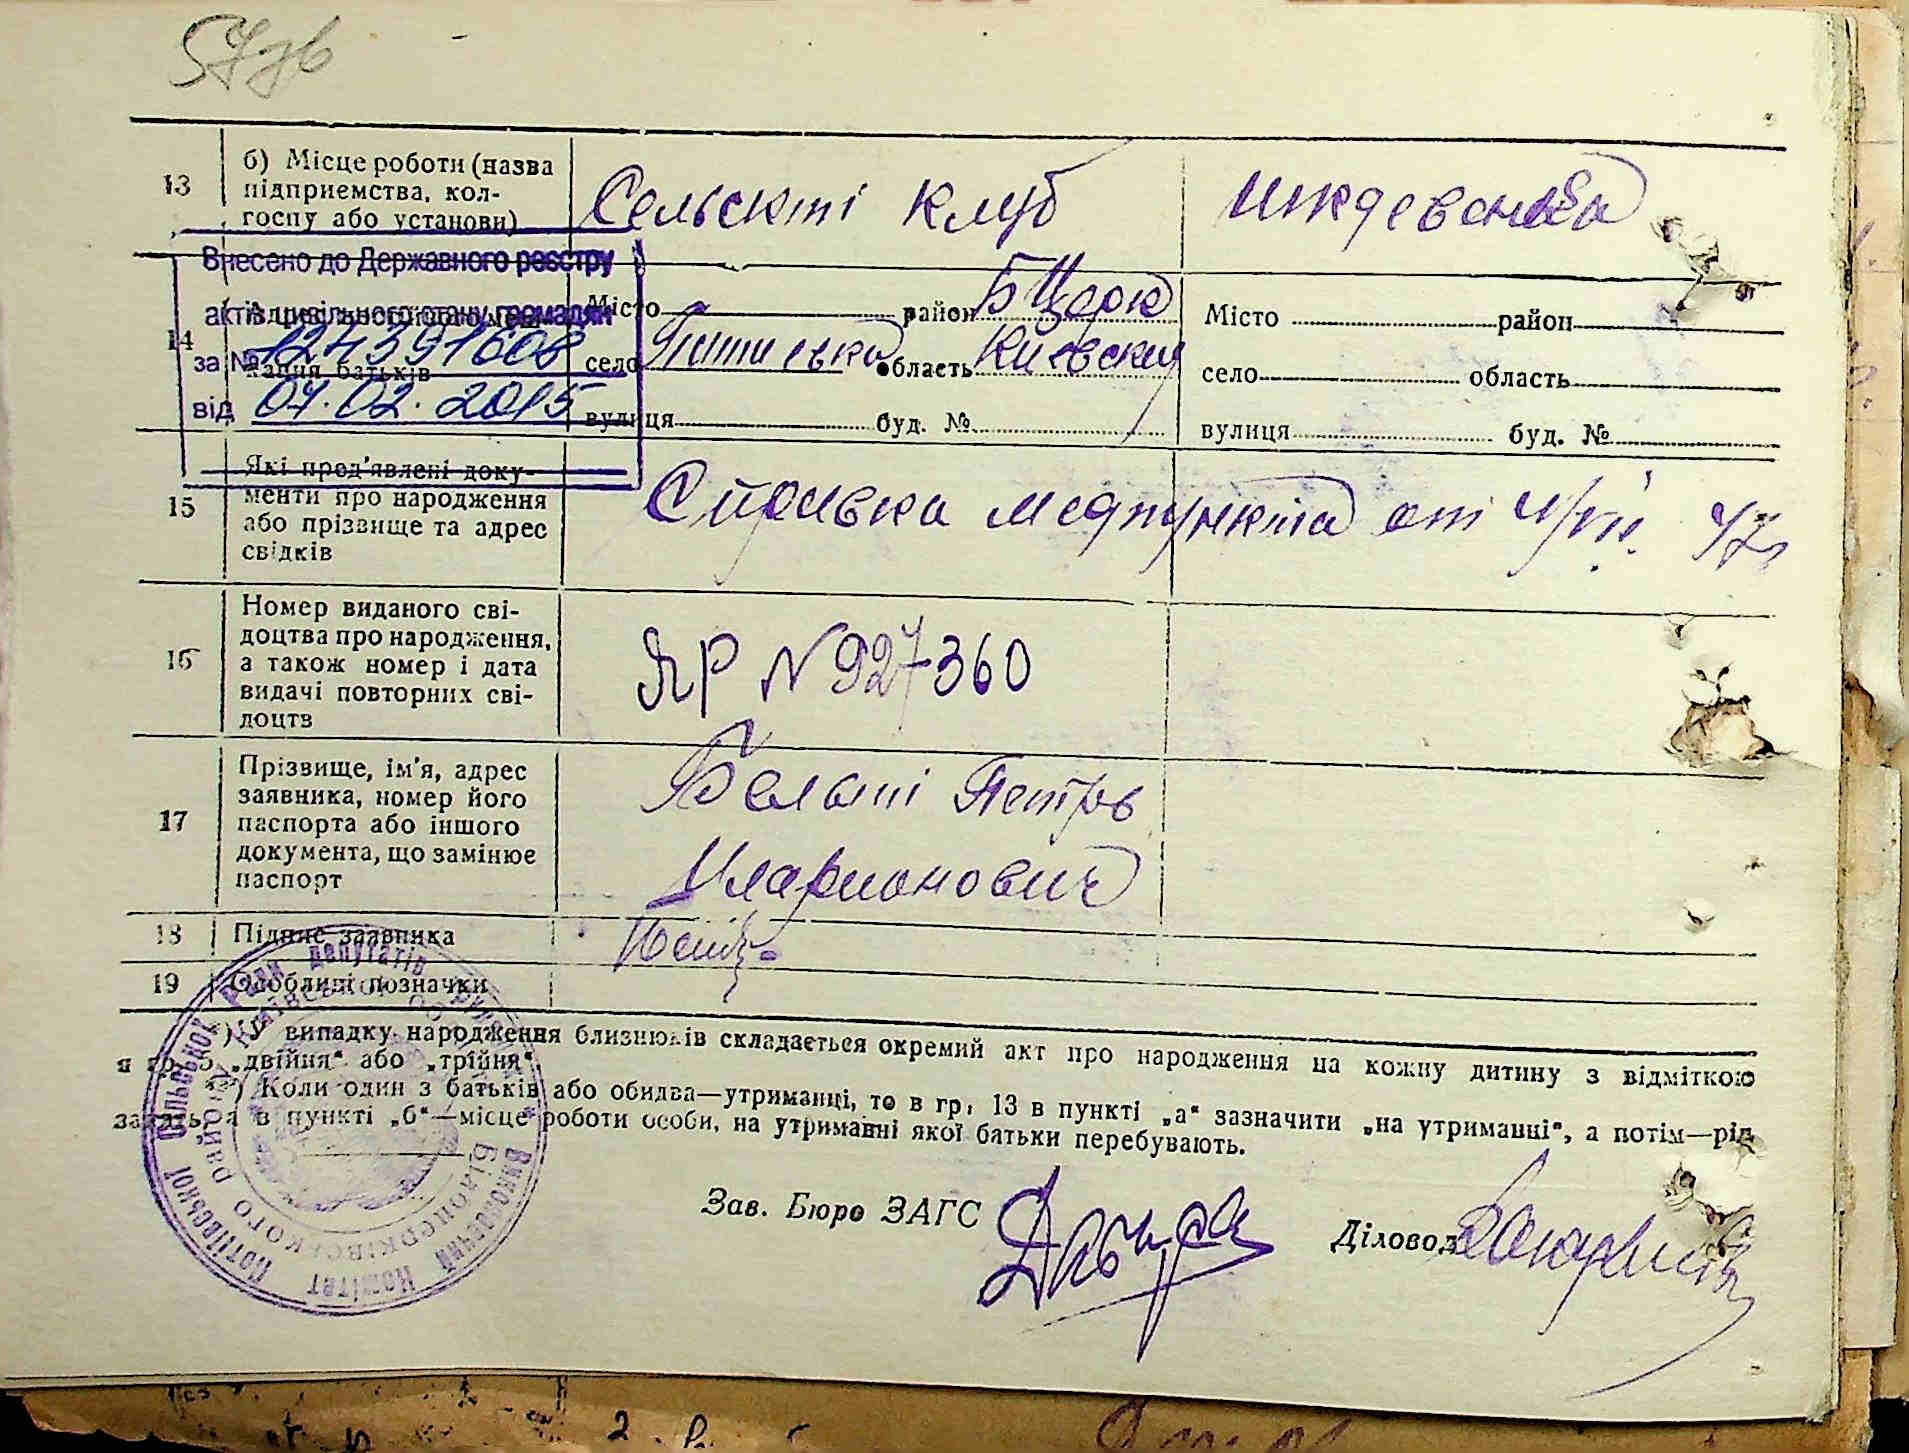 57зв
13
б) Місце роботи (назва
підприємства, кол-
госпу або установи)
Сельскті клуб
иждевенка
Внесено до Державного реєстру
актів цивільного стану громадян
за № 124391608
від 07.02.2015
14
кання батьків
Місто район Б Церк
село область Киевская
вулиця буд. №
Місто район
село область
вулиця буд. №
15
Які пред'явлені доку-
менти про народження
або прізвище та адрес
свідків
Справка медпункта от 4/VII 47г
16
Номер виданого сві-
доцтва про народження,
а також номер і дата
видачі повторних сві-
доцтв
ЯР N 927360
17
Прізвище, ім'я, адрес
заявника, номер його
паспорта або іншого
документа, що замінює
паспорт
Петров
Иларионович
18
Підпис заявника
19
Особливі позначки
випадку народження близнюків складається окремий акт про народження на кожну дитину з відміткою
„двійня“ або „трійня“
Коли один з батьків або обидва—утриманці, то в гр. 13 в пункті „а“ зазначити „на утриманні“, а потім—рід
а в пункті „б“—місце роботи особи, на утриманні якої батьки перебувають.
Зав. Бюро ЗАГС
Діловод
Виконавчий Комітет Потіївської Сільської Ради Депутатів
Білоцерківського району Київської